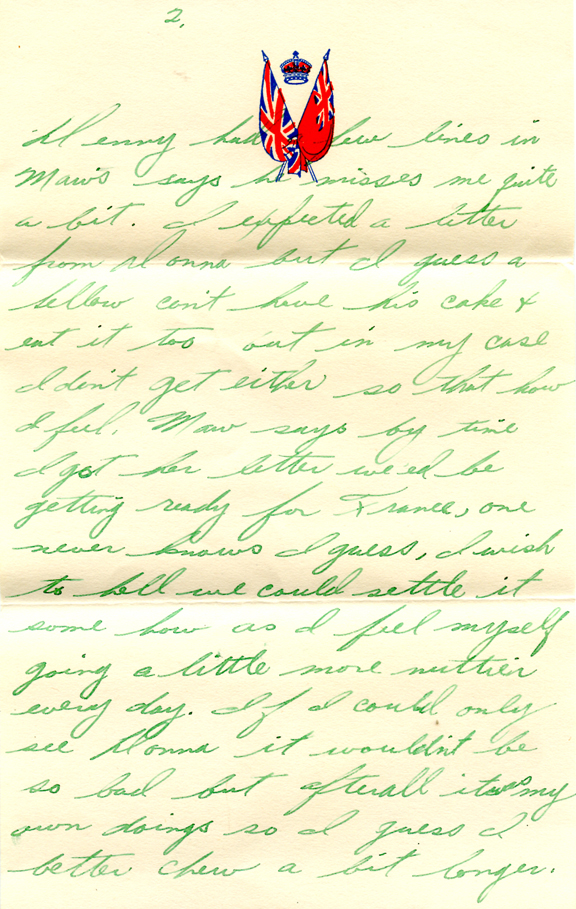 2.
Henny had a few lines in
Maw's says he misses me quite
a bit. I expected a letter
from Donna but I guess a
fellow can't have his cake &
eat it too out in my case
I don't get either so that how
I feel. Maw says by time
I got her letter we'ed be
getting ready for France, one
never knows I guess, I wish
to hell we could settle it
some how as I feel myself
going a little more nuttier
every day. If I could only
see Donna it wouldn't be
so bad but afterall it was my
own doings so I guess I
better chew a bit longer.